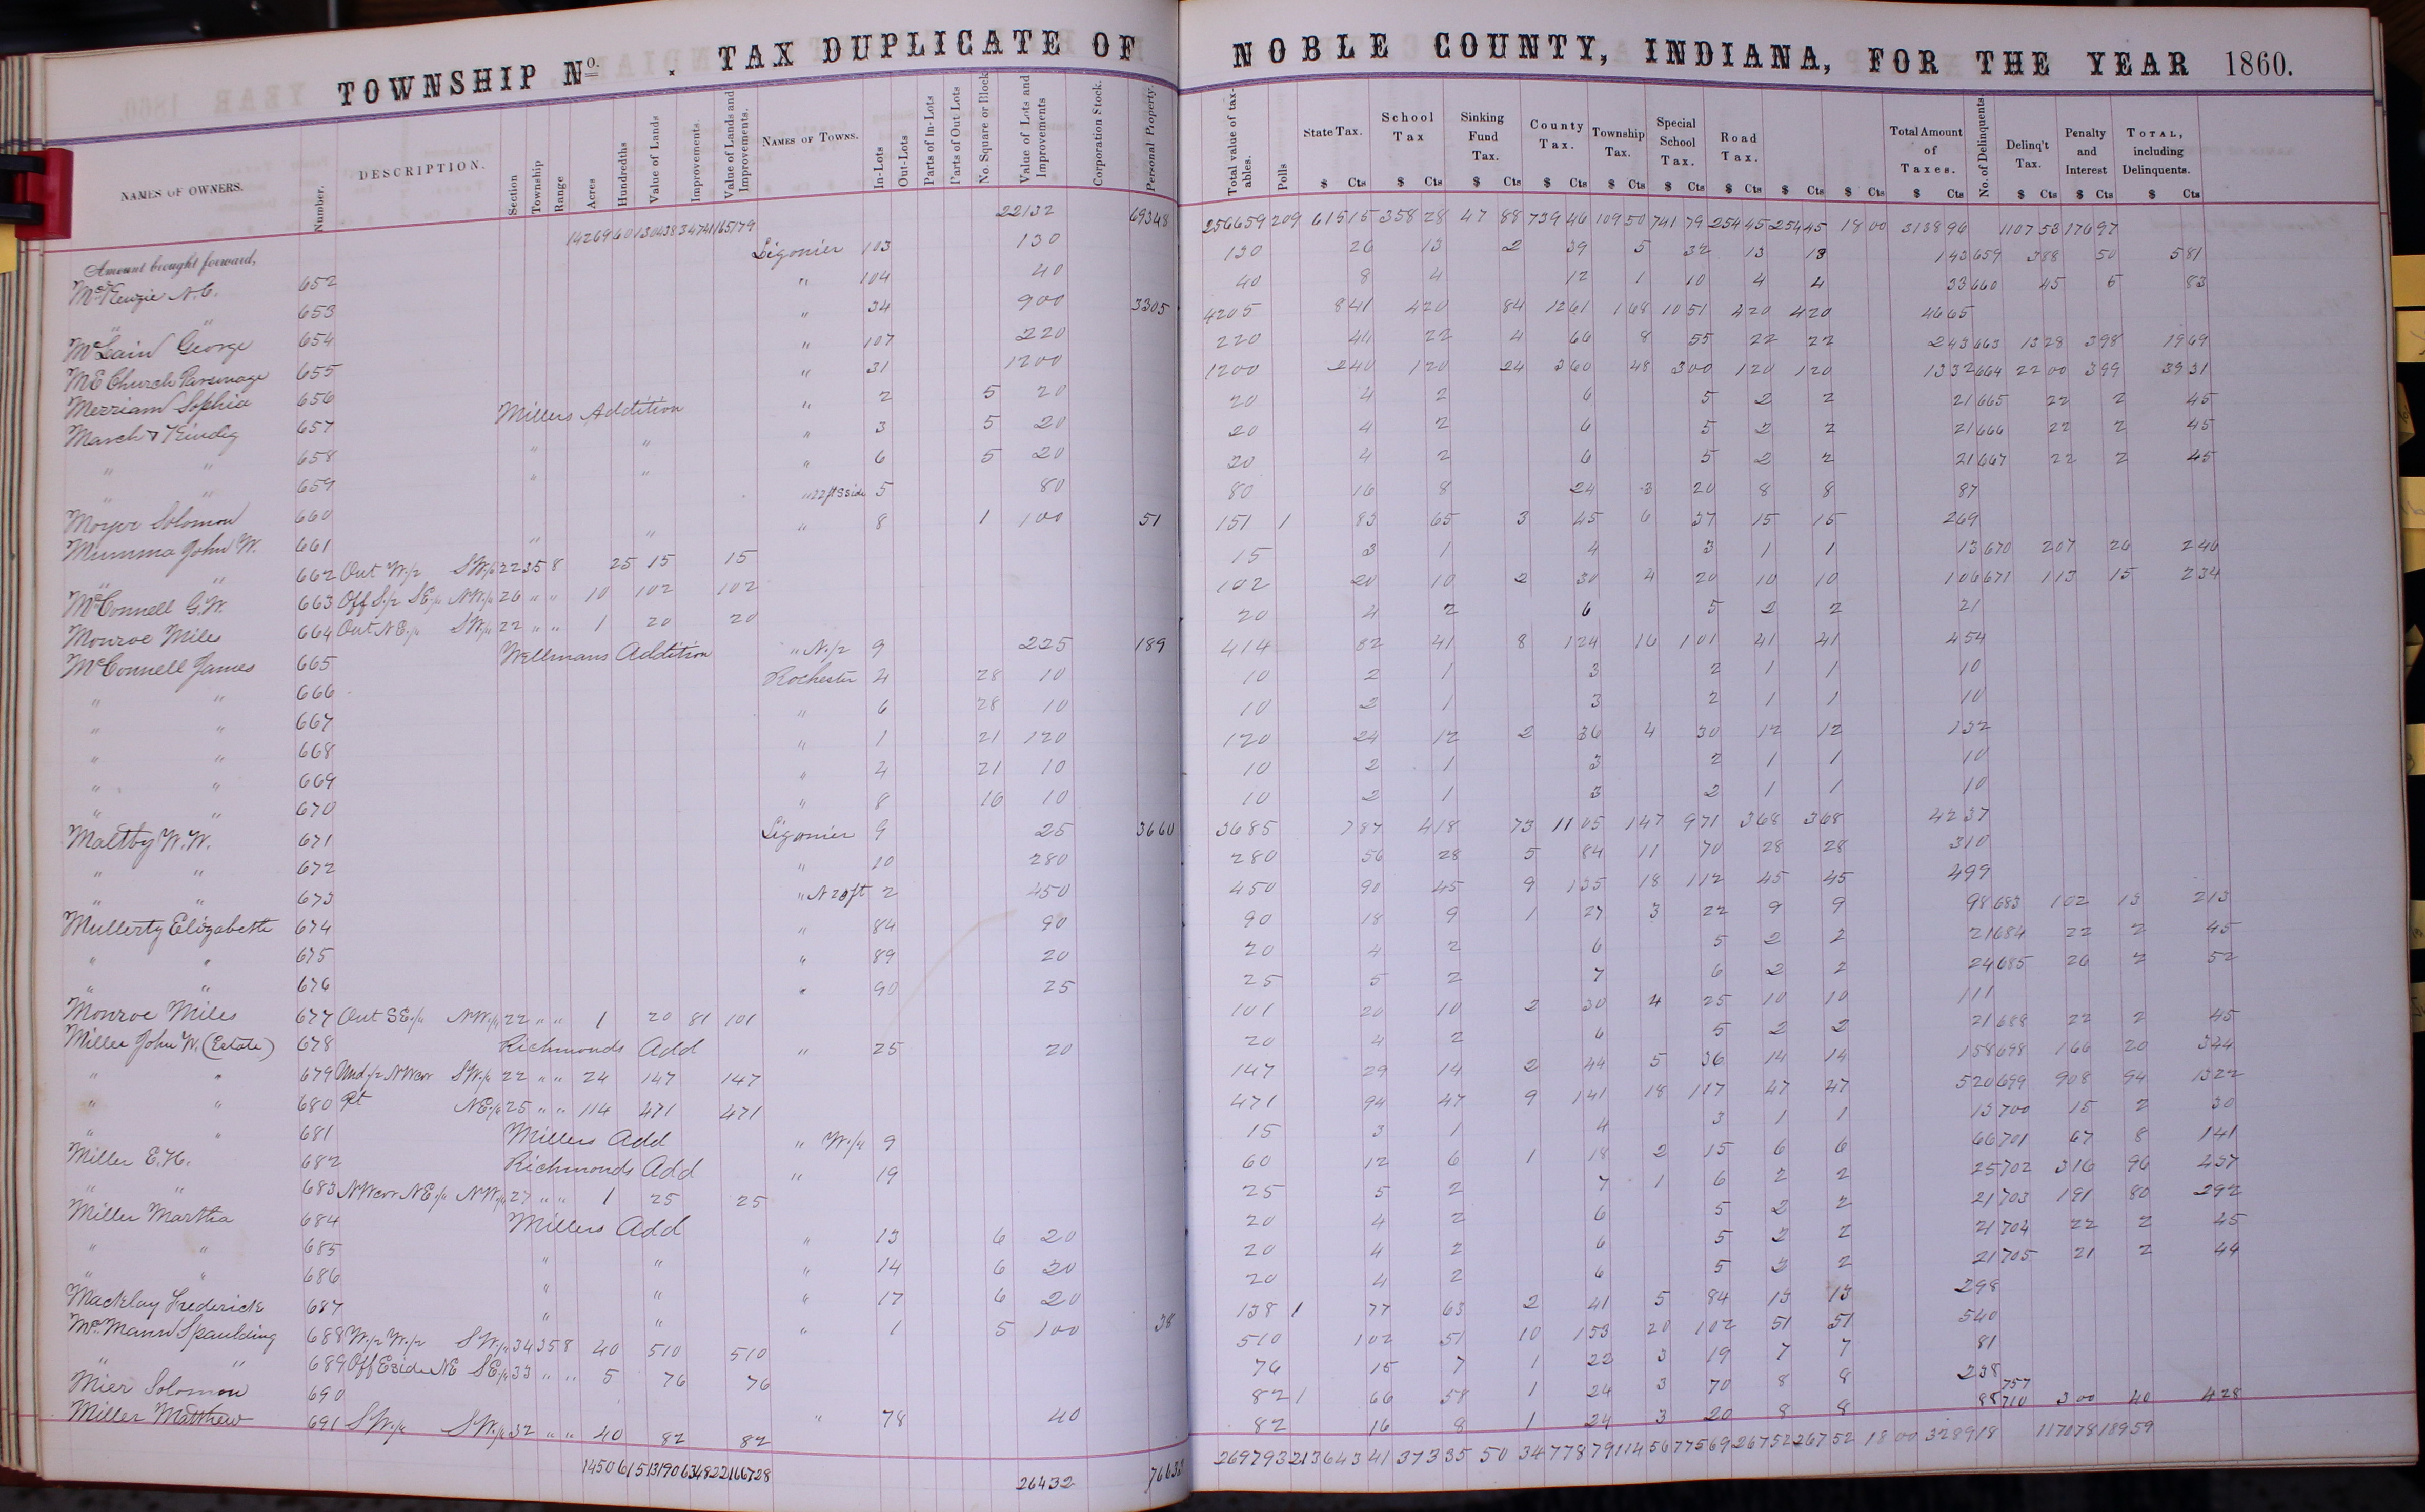 TOWNSHIP No. . TAX DUPLICATE OF NOBLE COUNTY, INDIANA, FOR THE YEAR 1860.
NAMES OF OWNERS. Number. DESCRIPTION. Section Township Range Acres Hundredths Value of Lands Improvements Value of Lands and Improvements. NAMES OF TOWNS. In-Lots Out-Lots Parts of In-Lots Parts of Out Lots No. Square or Block Value of Lots and Improvements Corporation Stock. Personal Property. Total value of taxables. Polls State Tax. School Tax Sinking Fund Tax. County Tax. Township Tax. Special School Tax. Road Tax. Total Amount of Taxes. No. of Delinquents Delinq't Tax. Penalty and Interest TOTAL, including Delinquents.
$ Cts $ Cts $ Cts $ Cts $ Cts $ Cts $ Cts $ Cts $ Cts $ Cts $ Cts $ Cts $ Cts
Amount brought forward, 14269 60 130438 34741 165179 22132 69348 256659 209 615 15 358 28 47 88 739 46 109 50 741 79 254 45 254 45 18 00 3138 96 1107 53 176 97
McKenzie A.C. 652 Ligonier 103 130 130 26 13 2 39 5 32 13 13 143 659 388 50 581
" " 653 " 104 40 40 8 4 12 1 10 4 4 33 660 45 5 83
McLain George 654 " 34 900 3305 4205 841 420 84 1261 168 1051 420 420 4665
M E Church Parsonage 655 " 107 220 220 44 22 4 66 8 55 22 22 243 663 1328 398 1969
Merriam Sophia 656 " 31 1200 1200 240 120 24 360 48 300 120 120 1332 664 2200 399 3931
March & Kindig 657 Millers Addition " 2 5 20 20 4 2 6 5 2 2 21 665 22 2 45
" " 658 " " " 3 5 20 20 4 2 6 5 2 2 21 666 22 2 45
" " 659 " " " 6 5 20 20 4 2 6 5 2 2 21 667 22 2 45
Moyer Solomon 660 " 22 ft S side 5 80 80 16 8 24 3 20 8 8 87
Mumma John W. 661 " " " 8 1 100 51 151 1 83 65 3 45 6 37 15 15 269
" " 662 Out W 1/2 SW 1/4 22 35 8 25 15 15 15 3 1 4 3 1 1 13 670 207 26 246
McConnell G.W. 663 Off S 1/2 SE 1/4 NW 1/4 26 " " 10 102 102 102 20 10 2 30 4 20 10 10 106 671 113 15 234
Monroe Miles 664 Out NE 1/4 SW 1/4 22 " " 1 20 20 20 4 2 6 5 2 2 21
McConnell James 665 Wellmans Addition " N 1/2 9 225 189 414 82 41 8 124 16 101 41 41 454
" " 666 Rochester 4 28 10 10 2 1 3 2 1 1 10
" " 667 " 6 28 10 10 2 1 3 2 1 1 10
" " 668 " 1 21 120 120 24 12 2 36 4 30 12 12 132
" " 669 " 4 21 10 10 2 1 3 2 1 1 10
" " 670 " 8 16 10 10 2 1 3 2 1 1 10
Maltby W.W. 671 Ligonier 9 25 3660 3685 787 418 73 1105 147 971 368 368 4237
" " 672 " 10 280 280 56 28 5 84 11 70 28 28 310
" " 673 " N 20 ft 2 450 450 90 45 9 135 18 112 45 45 499
Mullerty Elizabeth 674 " 84 90 90 18 9 1 27 3 22 9 9 98 683 102 13 213
" " 675 " 89 20 20 4 2 6 5 2 2 21 684 22 2 45
" " 676 " 90 25 25 5 2 7 6 2 2 24 685 26 2 52
Monroe Miles 677 Out SE 1/4 NW 1/4 22 " " 1 20 81 101 101 20 10 2 30 4 25 10 10 111
Miller John W. (Estate) 678 Richmonds Add " 25 20 20 4 2 6 5 2 2 21 688 22 2 45
" " 679 Und 1/2 NW cor SW 1/4 22 " " 24 147 147 147 29 14 2 44 5 36 14 14 158 698 166 20 344
" " 680 Pt NE 1/4 25 " " 114 471 471 471 94 47 9 141 18 117 47 47 520 699 908 94 1322
" " 681 Millers Add " W 1/4 9 15 3 1 4 3 1 1 13 700 15 2 30
Miller E.H. 682 Richmonds Add " 19 60 12 6 1 18 2 15 6 6 66 701 67 8 141
" " 683 NW cor NE 1/4 NW 1/4 27 " " 1 25 25 25 5 2 7 1 6 2 2 25 702 316 96 437
Miller Martha 684 Millers Add " 13 6 20 20 4 2 6 5 2 2 21 703 191 80 292
" " 685 " " " 14 6 20 20 4 2 6 5 2 2 21 704 22 2 45
" " 686 " " " 17 6 20 20 4 2 6 5 2 2 21 705 21 2 44
Macklay Frederick 687 " " " 1 5 100 38 138 1 77 63 2 41 5 84 13 13 298
McMann Spaulding 688 W 1/2 W 1/2 SW 1/4 34 35 8 40 510 510 510 102 51 10 153 20 102 51 51 540
" " 689 Off E side NE SE 1/4 33 " " 5 76 76 76 15 7 1 22 3 19 7 7 81
Mier Solomon 690 " 78 40 82 1 66 58 1 24 3 70 8 8 238 757
Miller Matthew 691 SW 1/4 SW 1/4 32 " " 40 82 82 82 16 8 1 24 3 20 8 8 88 710 300 40 428
14506 15 131906 34822 166728 26432 7663 269793 213 643 41 373 35 50 34 778 79 114 56 775 69 267 52 267 52 18 00 3289 18 1170 78 189 59